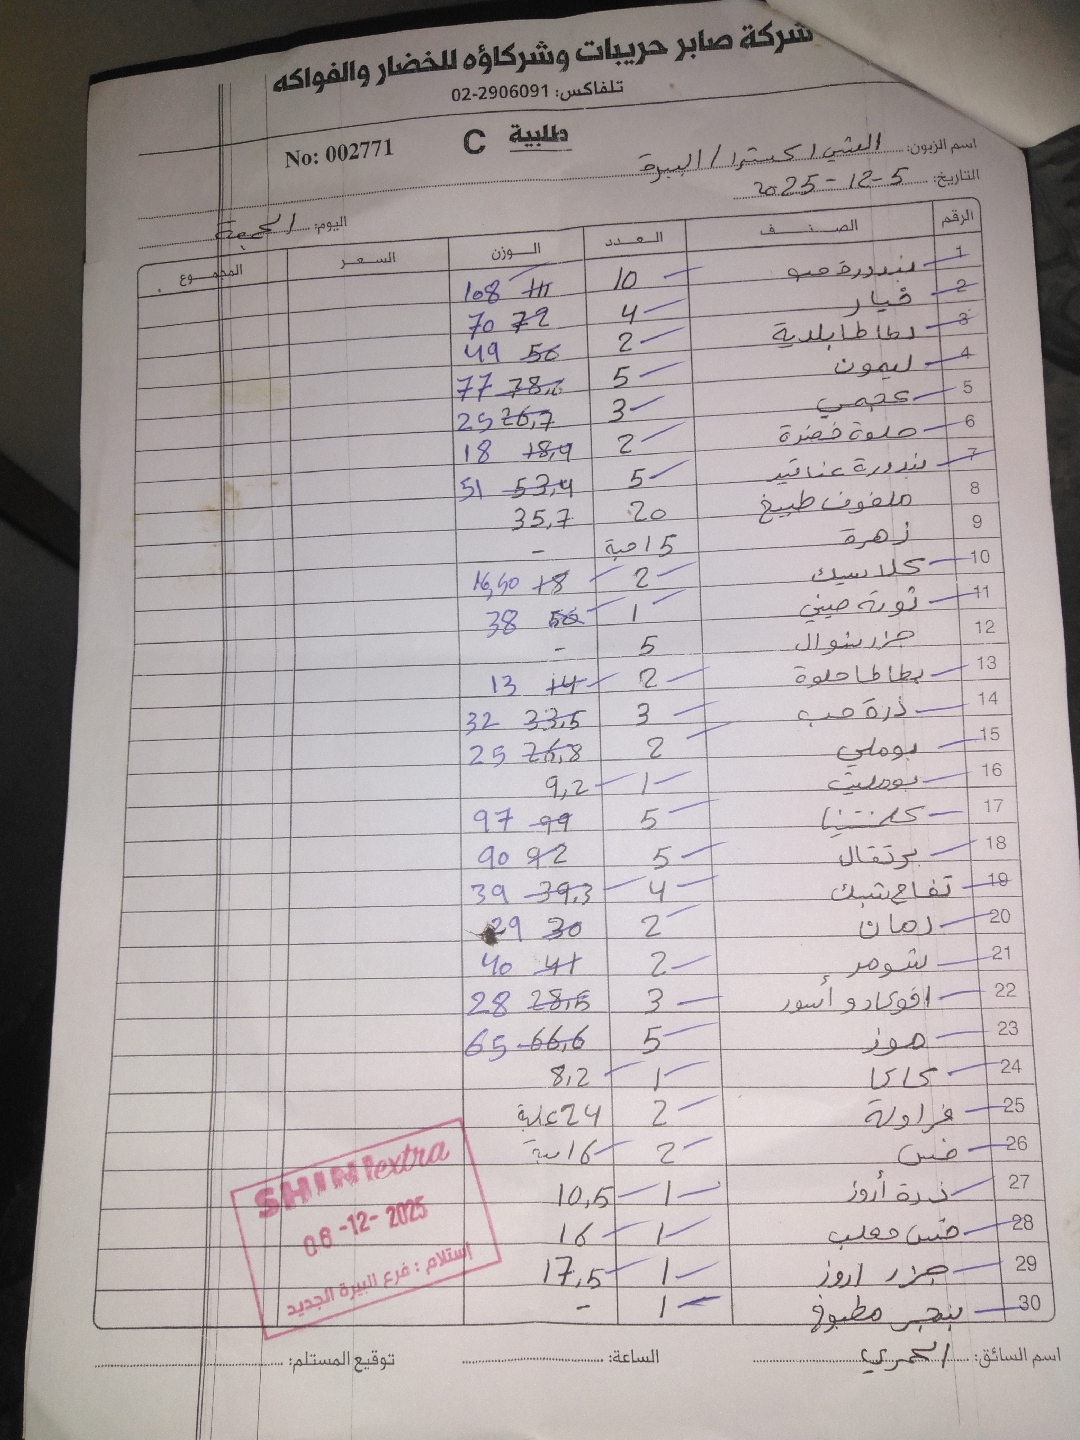 شركة صابر حريبات وشركاؤه للخضار والفواكه
تلفاكس: 02-2906091
طلبية C
No: 002771
اسم الزبون: الشني اكسترا / البيرة
التاريخ: 2025-12-5
اليوم: الجمعة
الرقم الصنف العدد الوزن السعر المجموع
1 بندورة حبو 10 111 108
2 خيار 4 72 70
3 بطاطا بلدية 2 50 49
4 ليمون 5 78,6 77
5 عجمي 3 26,7 25
6 حلوة خضرة 2 18,4 18
7 بندورة عناقيد 5 53,4 51
8 ملفوف طبيخ 20 35,7
9 زهرة 15 حبة -
10 كلاسيك 2 18 16,50
11 تومة صيني 1 38
12 جزر شوال 5 -
13 بطاطا حلوة 2 14 13
14 ذرة حب 3 33,5 32
15 بوملي 2 26,8 25
16 بومليت 1 9,2
17 كلمنتينا 5 99 97
18 برتقال 5 92 90
19 تفاح شبك 4 39,3 39
20 رمان 2 30 29
21 شومر 2 41 40
22 افوكادو أسود 3 28,5 28
23 موز 5 66,6 65
24 كاكا 1 8,2
25 فراولة 2 24 علبة
26 خس 2 16 حبة
27 ذرة أروز 1 10,5
28 خس معلب 1 16
29 جزر اروز 1 17,5
30 بنجر مطبوخ 1 -
SHINI extra
06-12-2025
استلام : فرع البيرة الجديد
اسم السائق: الساعة: توقيع المستلم: